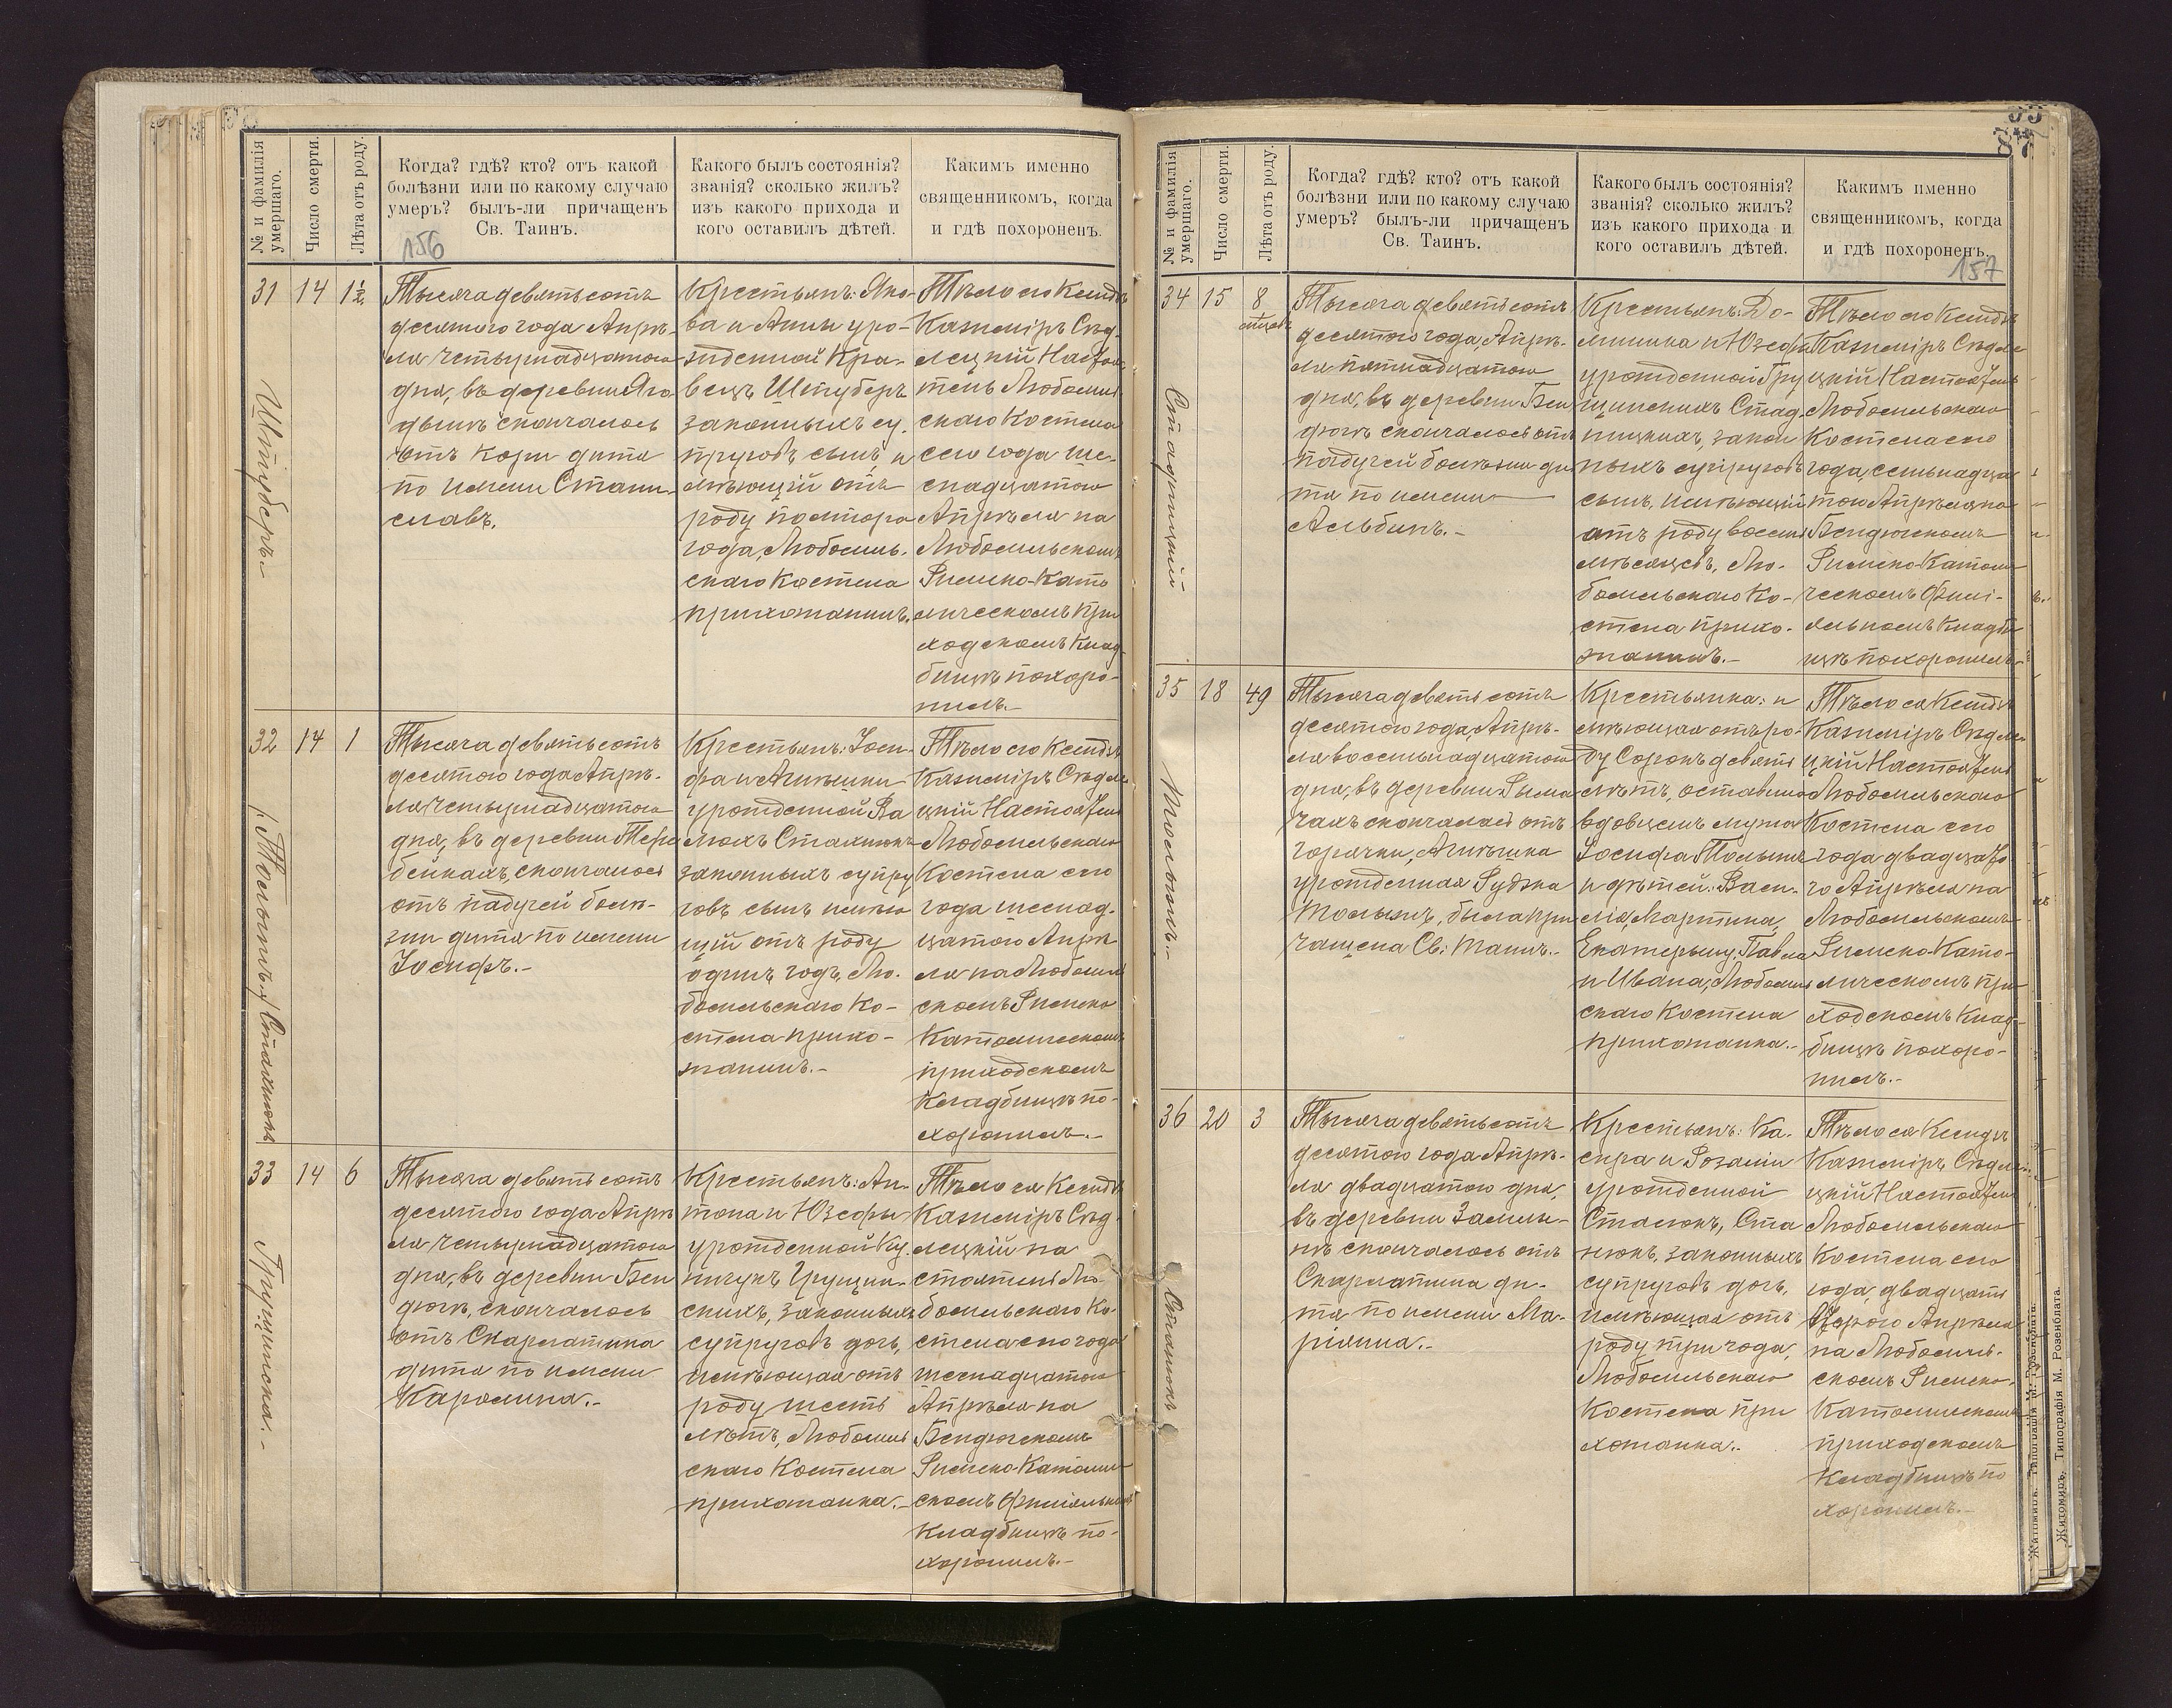 № и фамилія умершаго.
Число смерти.
Лѣта отъ роду.
Когда? гдѣ? кто? отъ какой
болѣзни или по какому случаю
умеръ? былъ-ли причащенъ
Св. Таинъ.
156
Какого былъ состоянія?
званія? сколько жилъ?
изъ какого прихода и
кого оставилъ дѣтей.
Какимъ именно
священникомъ, когда
и гдѣ похороненъ.
31
Штуберъ.-
14
1½
Тысяча девятьсотъ
десятого года Апрѣ-
ля четырнадцатого
дня, въ деревни Яго
дынъ скончалось
отъ кори дитя
по имени Стани-
славъ.
Крестьянъ: Яко-
ва и Анны уро-
жденной Кра-
вецъ Штуберъ
законныхъ су-
пруговъ сынъ, и
мѣющій отъ
роду полтора
года, Любомль-
скаго Костела
прихожанинъ.
Тѣло его Ксендзъ
Казиміръ Сѣд-
лецкій Настоя-
тель Любомль
скаго Костела
сего года ше-
снадцатого
Апрѣля на
Любомльскомъ
Римско-Като
лическомъ При
ходскомъ Клад-
бищѣ похоро-
нилъ.-
32
Стахнюкъ
14
1
Тысяча девятьсотъ
десятого года Апрѣ-
ля четырнадцатого
дня, въ деревни Тере
бейкахъ, скончалось
отъ падучей болѣ-
зни дитя по имени
Іосифъ.-
Крестьянъ: Іоси-
фа и Агнѣшки
урожденной Ва
люхъ Стахнюкъ
законныхъ супру
говъ сынъ имѣю
щій отъ роду
одинъ годъ, Лю-
бомльскаго Ко-
стела прихо-
жанинъ.-
Тѣло его Ксендзъ
Казиміръ Сѣдле-
цкій Настоятель
Любомльскаго
Костела сего
года шеснад-
цатого Апрѣ
ля на Любомль
скомъ Римско
Католическомъ
приходскомъ
Кладбищѣ по-
хоронилъ.-
33
Грущинска.-
14
6
Тысяча девятьсотъ
десятого года Апрѣ
ля четырнадцатого
дня, въ деревни Бен
дюгѣ, скончалось
отъ Скарлатина
дитя по имени
Каролина.-
Крестьянъ: Ан-
тона и Юзефы
урожденной Ку-
нигунъ Грущин-
скихъ, законныхъ
супруговъ дочь,
имѣющая отъ
роду шесть
лѣтъ, Любомль
скаго Костела
прихожанка.-
Тѣло ея Ксендзъ
Казиміръ Сѣд-
лецкій На
стоятель Лю-
бомльскаго Ко-
стела сего года
шеснадцатого
Апрѣля на
Бендюгскомъ
Римско-Католи
скомъ Филіальномъ
Кладбищѣ по-
хоронилъ.-
87
№ и фамилія умершаго.
Число смерти.
Лѣта отъ роду.
Когда? гдѣ? кто? отъ какой
болѣзни или по какому случаю
умеръ? былъ-ли причащенъ
Св. Таинъ.
Какого былъ состоянія?
званія? сколько жилъ?
изъ какого прихода и
кого оставилъ дѣтей.
Какимъ именно
священникомъ, когда
и гдѣ похороненъ.
157
34
Стадницкій
15
8
Тысяча девятьсотъ
десятого года, Апрѣ-
ля пятнадцатого
дня, въ деревни Бен
дюгѣ скончалось отъ
падучей болѣзни ди
тя по имени
Альбинъ.-
Крестьянъ: До-
миника и Юзефы
урожденной Гру
щинскихъ Стад-
ницкихъ, закон
ныхъ супруговъ
сынъ, имѣющій
отъ роду восемь
мѣсяцевъ, Лю-
бомльскаго Ко-
стела прихо-
жанинъ.-
Тѣло его Ксендзъ
Казиміръ Сѣдле
цкій Настоятель
Любомльскаго
Костела сего
года, семьнадца
того Апрѣля на
Бендюгскомъ
Римско-Католи
ческомъ Филі-
альномъ Кладби
щѣ похоронилъ.
35
18
49
Тысяча девятьсотъ
десятого года, Апрѣ-
ля восемьнадцатого
дня, въ деревни Рыма
чахъ скончалась отъ
горячки, Агнѣшка
урожденная Рудзка
была при
чащена Св: Таинъ.-
Крестьянка: и
мѣющая отъ ро-
ду сорокъ девять
лѣтъ, оставила
вдовцемъ мужа
Іосифа
и дѣтей: Васи-
лія, Мартина,
Екатерину, Павла
и Ивана, Любомль
скаго Костела
прихожанка.-
Тѣло ея Ксендзъ
Казиміръ Сѣдле-
цкій Настоятель
Любомльскаго
Костела сего
года двадцато
го Апрѣля на
Любомльскомъ
Римско-Като-
лическомъ при
ходскомъ Клад-
бищѣ похоро-
нилъ.-
36
20
3
Тысяча девятьсотъ
десятого года Апрѣ-
ля двадцатого дня,
въ деревни Замлы-
нѣ скончалось отъ
Скарлатина ди-
тя по имени Ма-
ріянна.-
Крестьянъ: Ка-
спра и Розаліи
урожденной
законныхъ
супруговъ дочь,
имѣющая отъ
роду три года,
Любомльскаго
Костела при
хожанка.-
Тѣло ея Ксендзъ
Казиміръ Сѣдле-
цкій Настоятель
Любомльскаго
Костела сего
года, двадцать
второго Апрѣля
на Любомль-
скомъ Римско-
Католическомъ
приходскомъ
Кладбищѣ по
хоронилъ.-
Житомиръ. Типографія М. Розенблата.
Житомиръ. Типографія М. Розенблата.